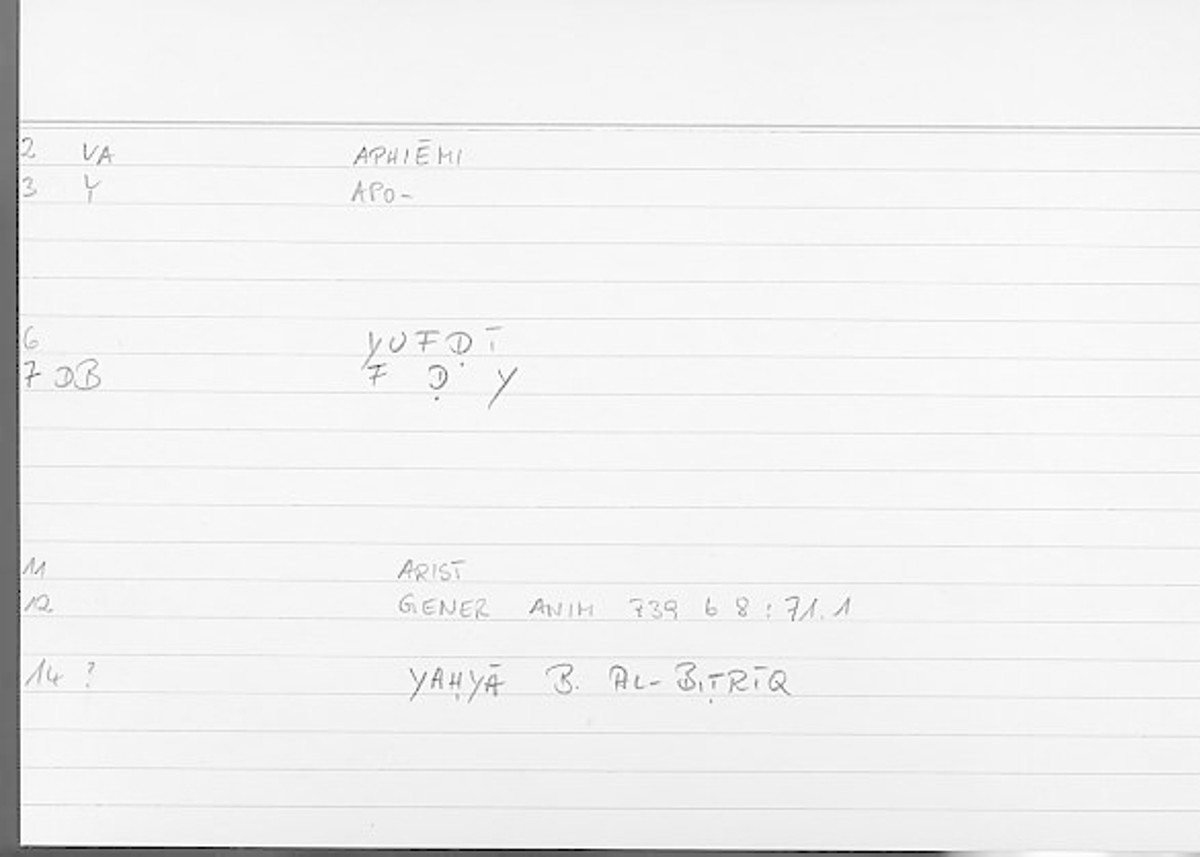 2 VA APHIĒMI
3 Y APO-
6 YUFḌĪ
7 DB F Ḍ Y
11 ARIST
12 GENER ANIM 739 b 8 : 71.1
14 ? YAḤYĀ B. AL-BIṬRĪQ